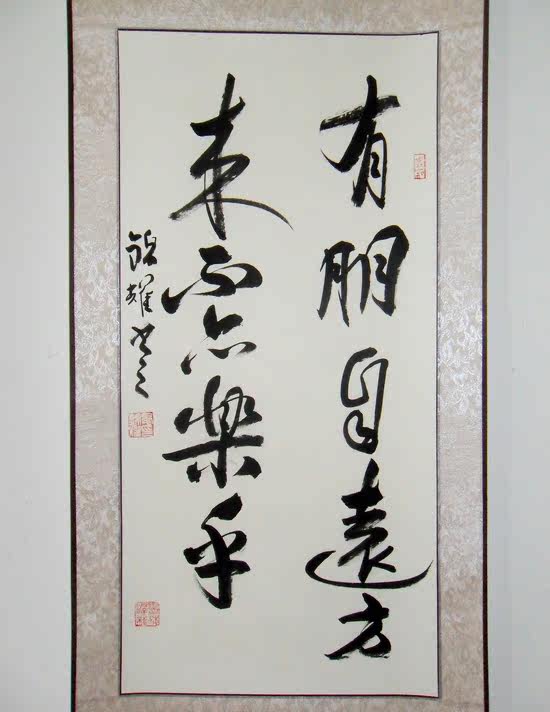 有朋自遠方
來不亦樂乎
耀書之